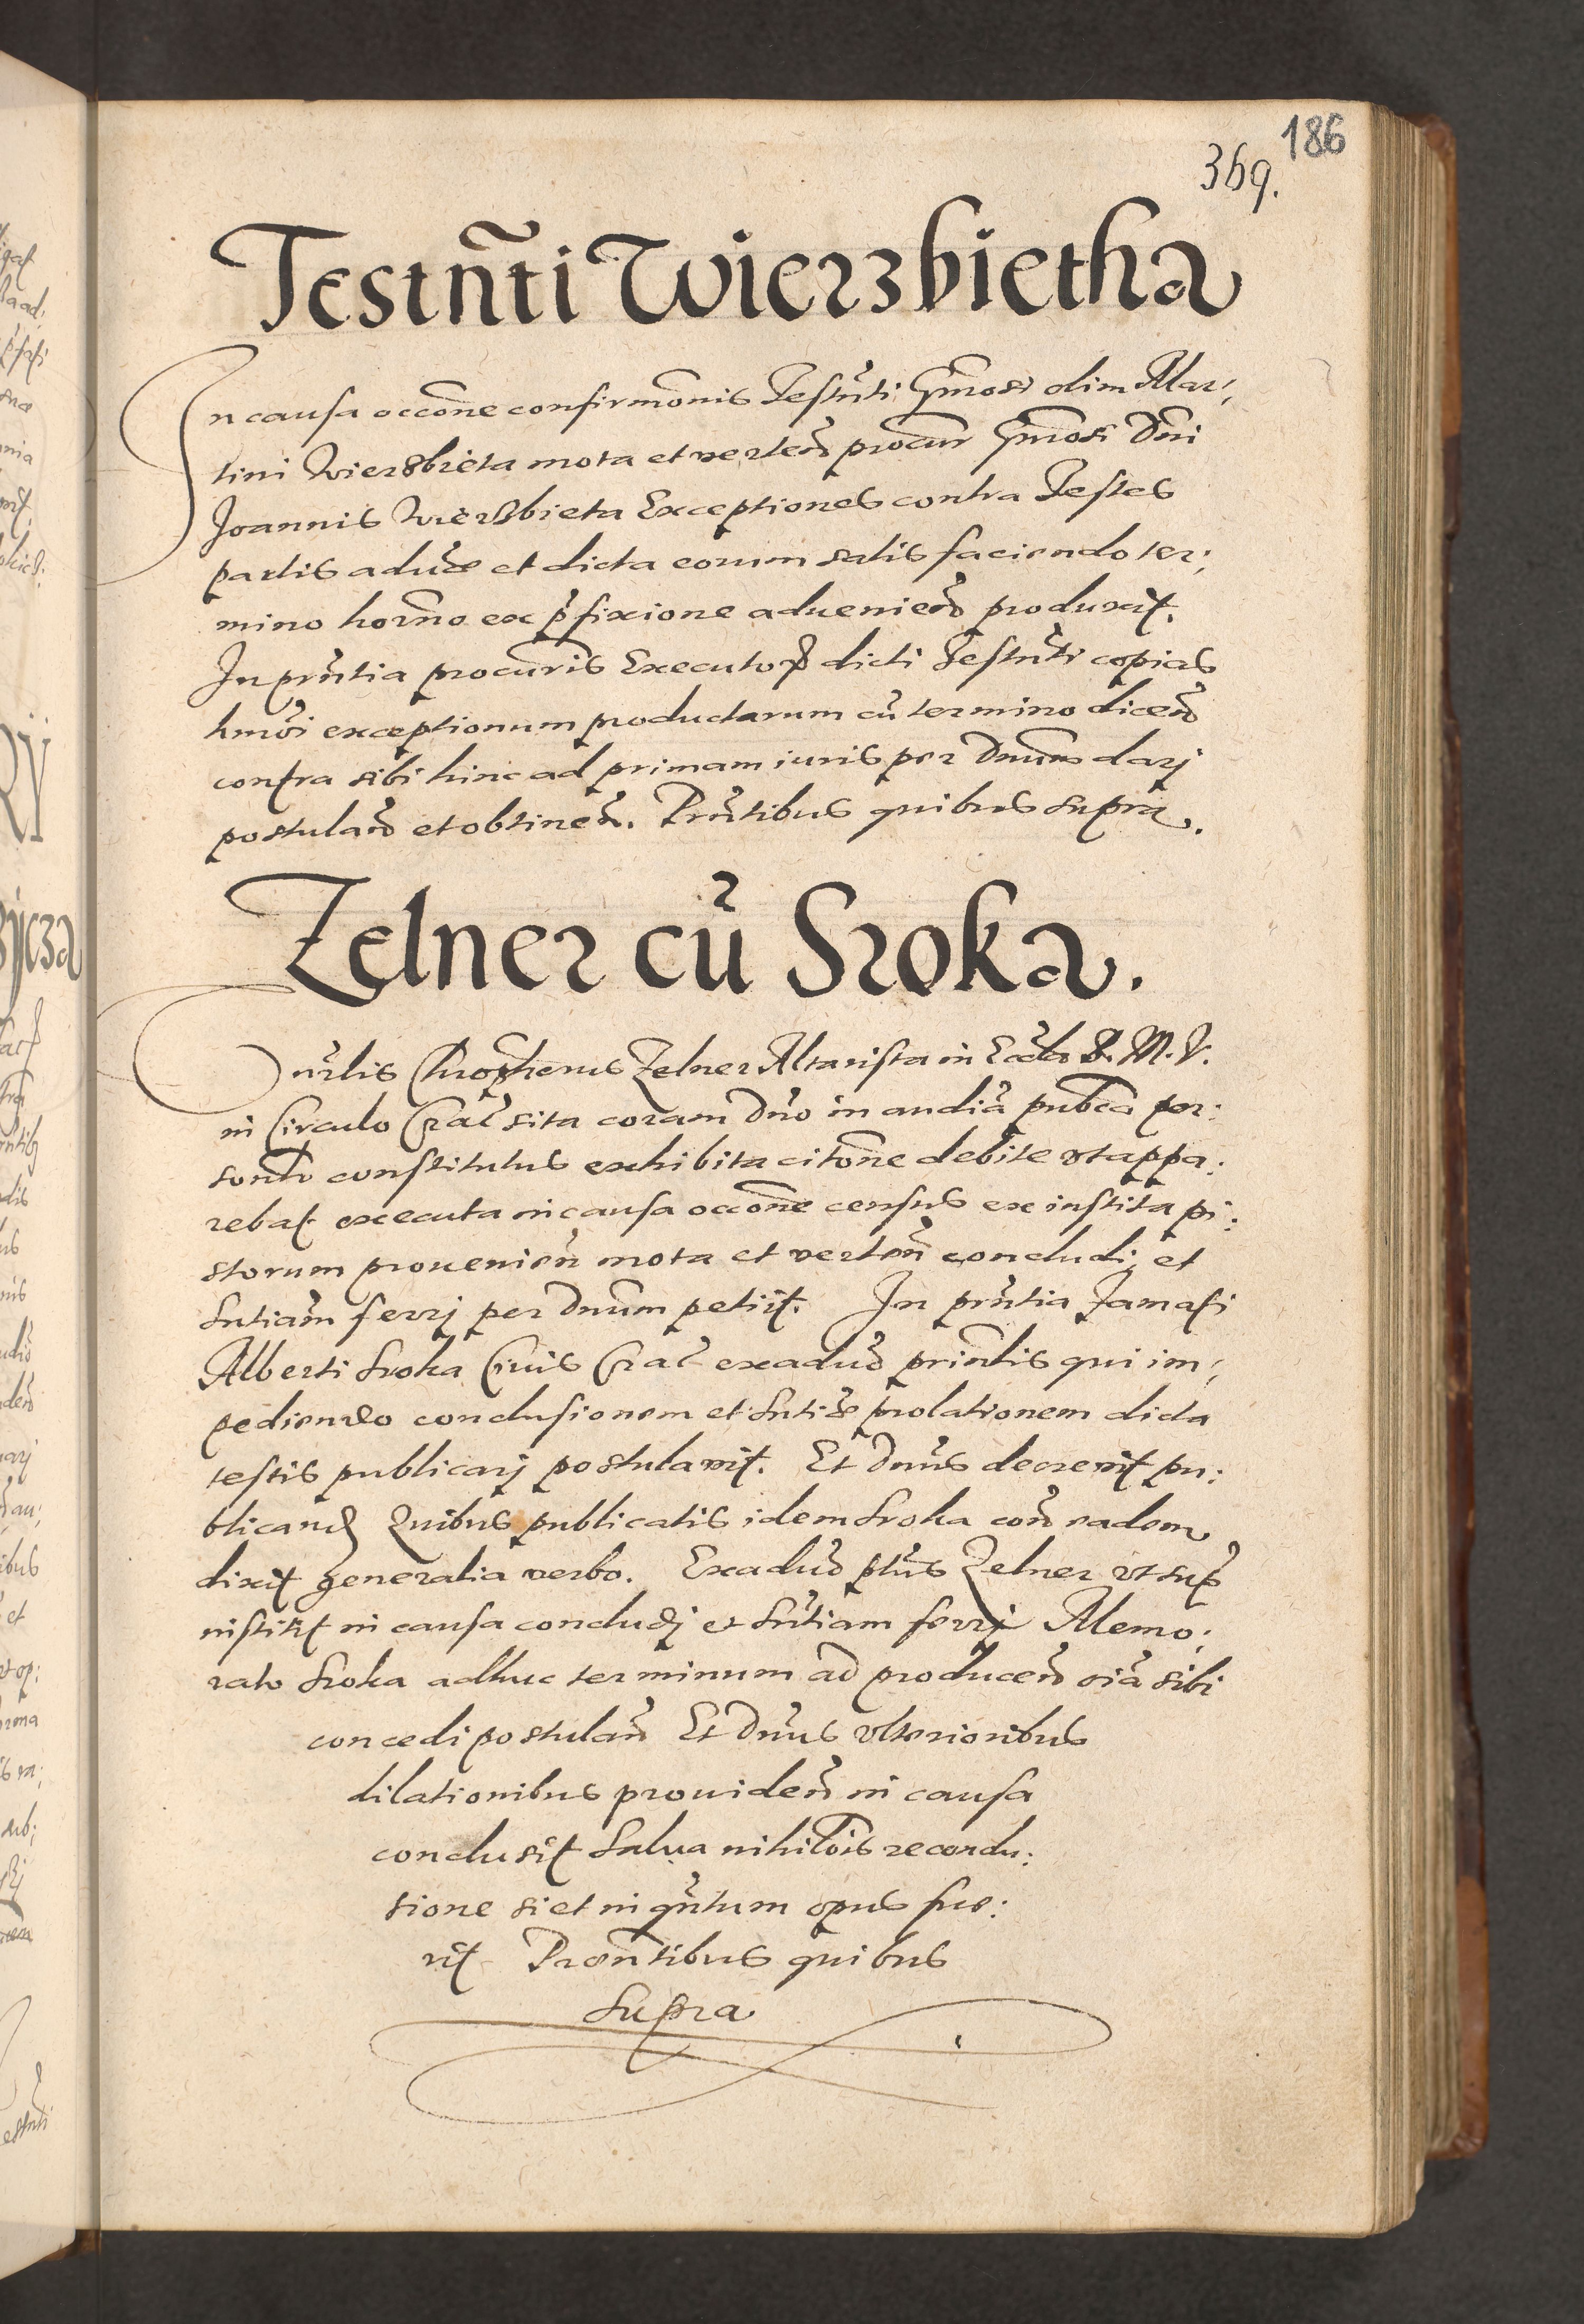 186
369.
Testñti Wierzbietha
In causa occõne confirmõnis Testñti Gñrosi olim Mar:
tini Wierzbieta mota et verteñ procur Gñrosi Dñi
Joannis Wierzbieta Exceptiones contra Testes
partis aduersæ et dicta eorum satis faciendo ter:
mino horño ex p̃fixione adueniẽn produxit.
In prñtia procuris Executorũ dicti Testñti copias
hmõi exceptionum productarum cũ termino diceñ
contra sibi hinc ad primam iuris per Dnũm darj
postulañ et obtineñ. Prñtibus quibus supra.
Zelner cũ Sroka.
Christopherus Zelner Altarista in Eccla B. M. V.
in Circulo Crac̃ sita coram Dño in audiã pubca per:
sonlr constitutus exhibita citõne debite vt appa:
rebat executa in causa occõne census ex instita pi:
storum prouenieñ mota et verteñ concludi, et
sntiam̃ ferrj per Dnũm petiit. In prñtia Famati
Alberti Sroka Ciuis Crac̃ exaduẽ prinlis qui im:
pediendo conclusionem et sntiæ prolationem dicta
testis publicarj postulavit. Et Dnũs decrevit pu:
blicand Quibus publicatis idem Sroka coñ eadem
dixit generalia verbo. Exaduẽ ptũs Zelner vt sup̃
institit in causa concludj et sñtiam ferrj Memo:
rato Sroka adhuc terminum ad produceñ oiã sibi
concedi postulañ Et Dnũs vlterioribus
dilationibus prouideñ in causa
conclusit salua nihilõis reconclu:
sione si et in qñtum opus fue:
rit Præsñtibus quibus
supra